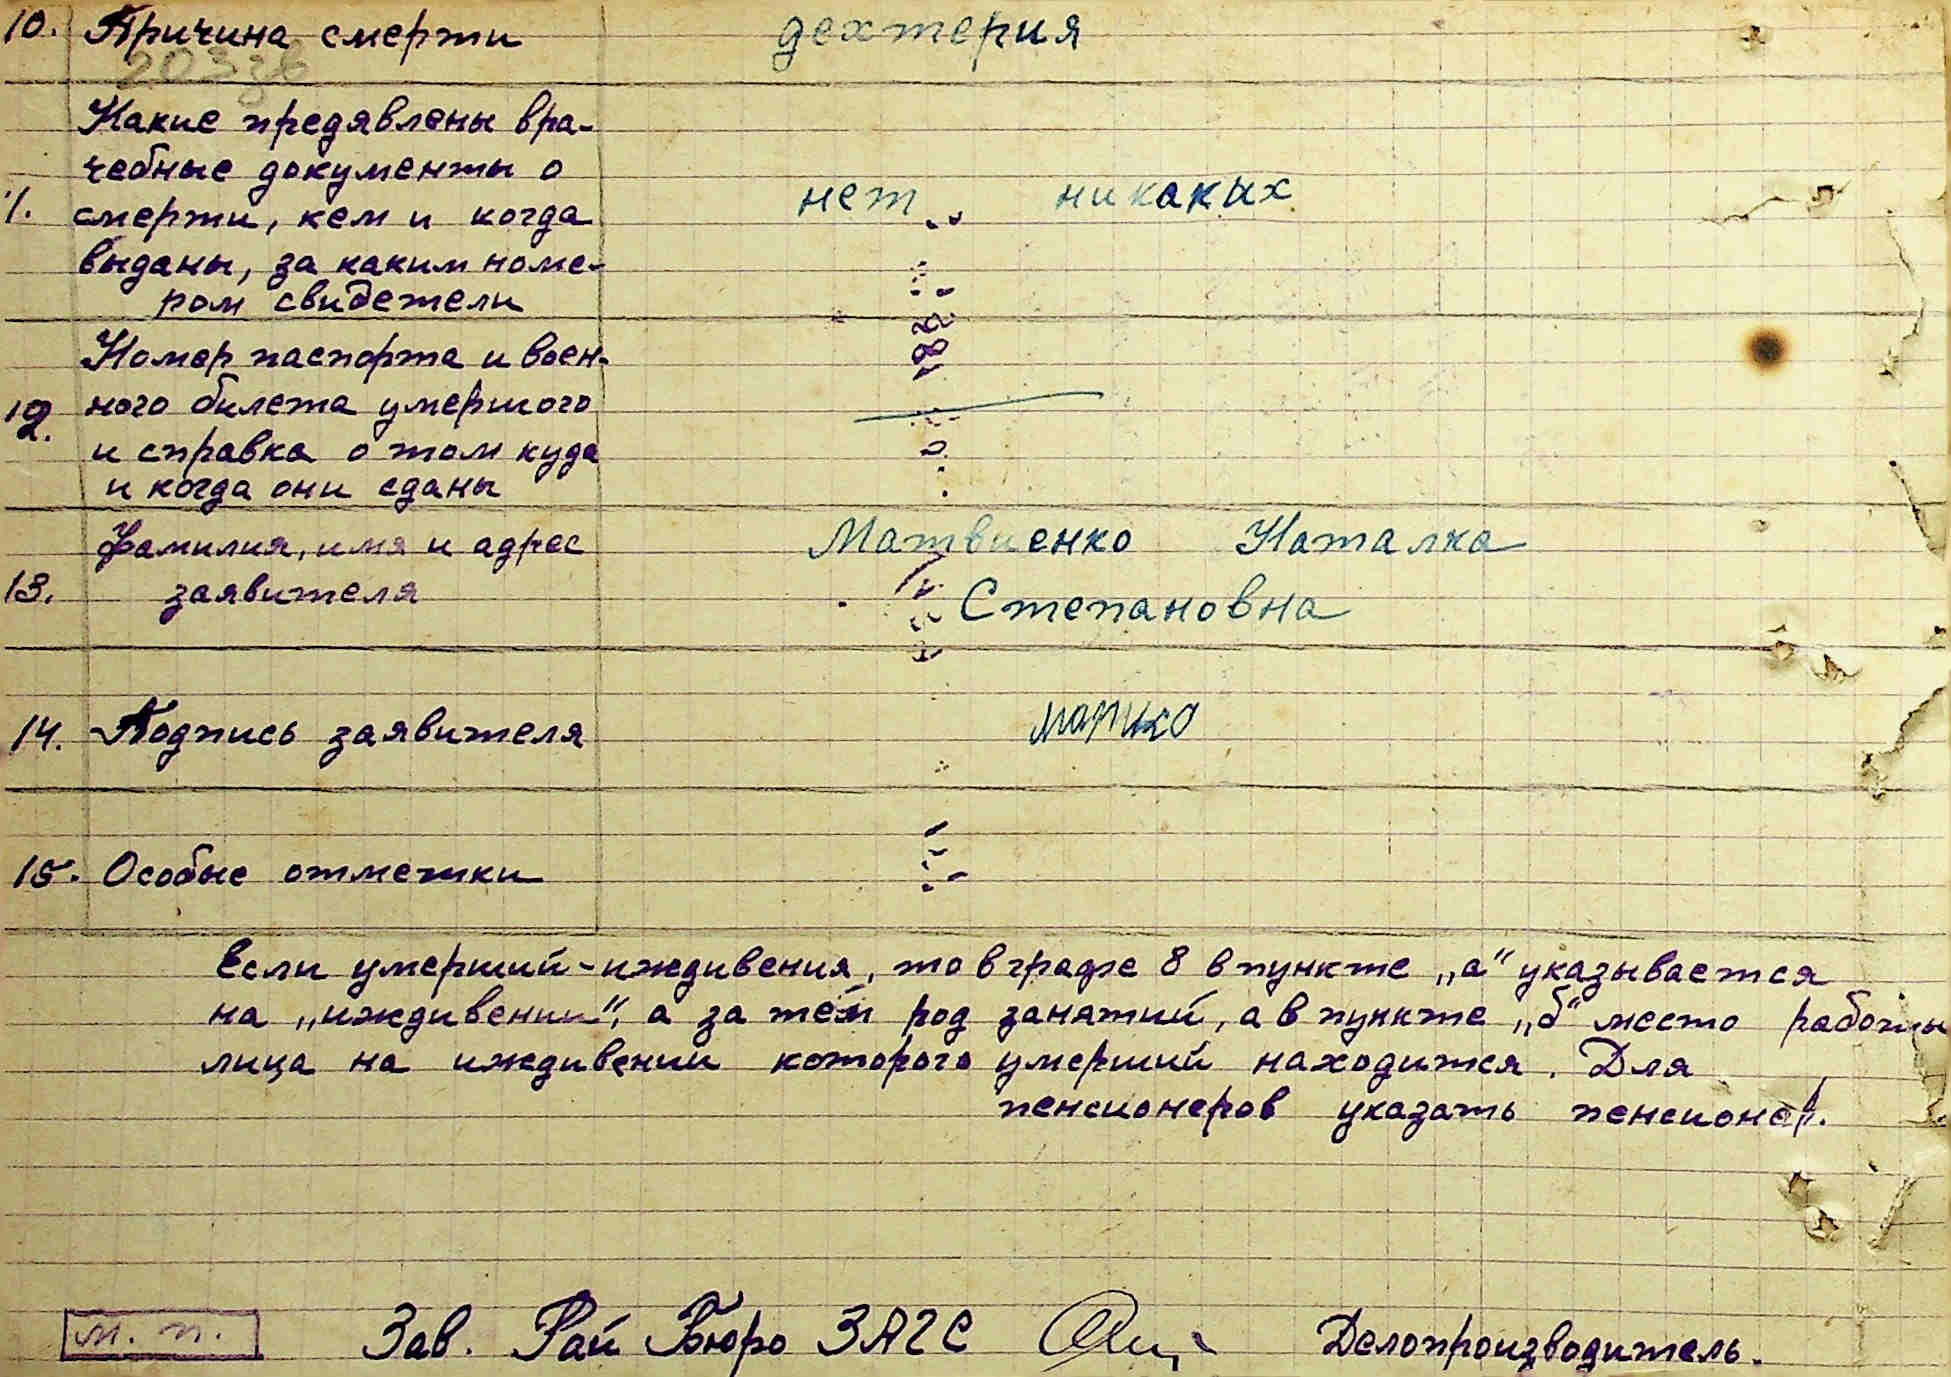 10. Причина смерти дехтерия
Какие предявлены вра-
чебные документы о
11. смерти, кем и когда нет никаких
выданы, за каким номе-
ром свидетели
Номер паспорта и воен-
12. ного билета умершого
и справка о том куда
и когда они сданы
Фамилия, имя и адрес Матвиенко Наталка
13. заявителя Степановна
14. Подпись заявителя
15. Особые отметки
Если умерший - иждивения, то в графе 8 в пункте „а“ указывается
на „иждивении“, а за тем род занятий, а в пункте „б“ место работы
лица на иждивении которого умерший находится. Для
пенсионеров указать пенсионер.
м. п. Зав. Рай Бюро ЗАГС Делопроизводитель.